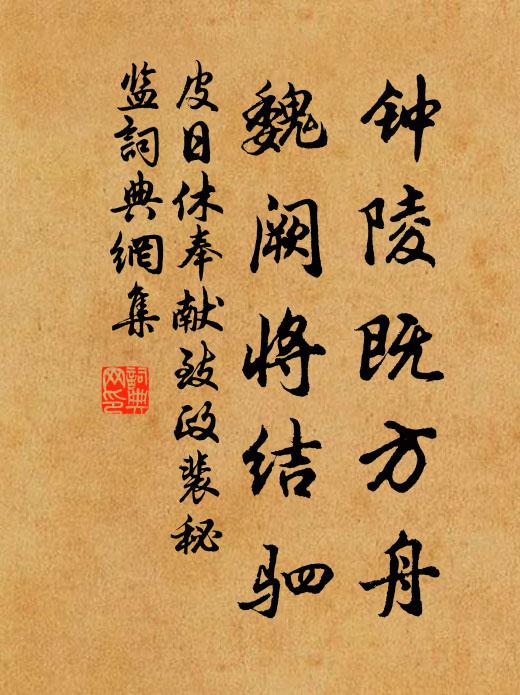 钟陵既方舟
魏阙将结驷
皮日休奉献致政裴秘
监词典網集
詞典網印